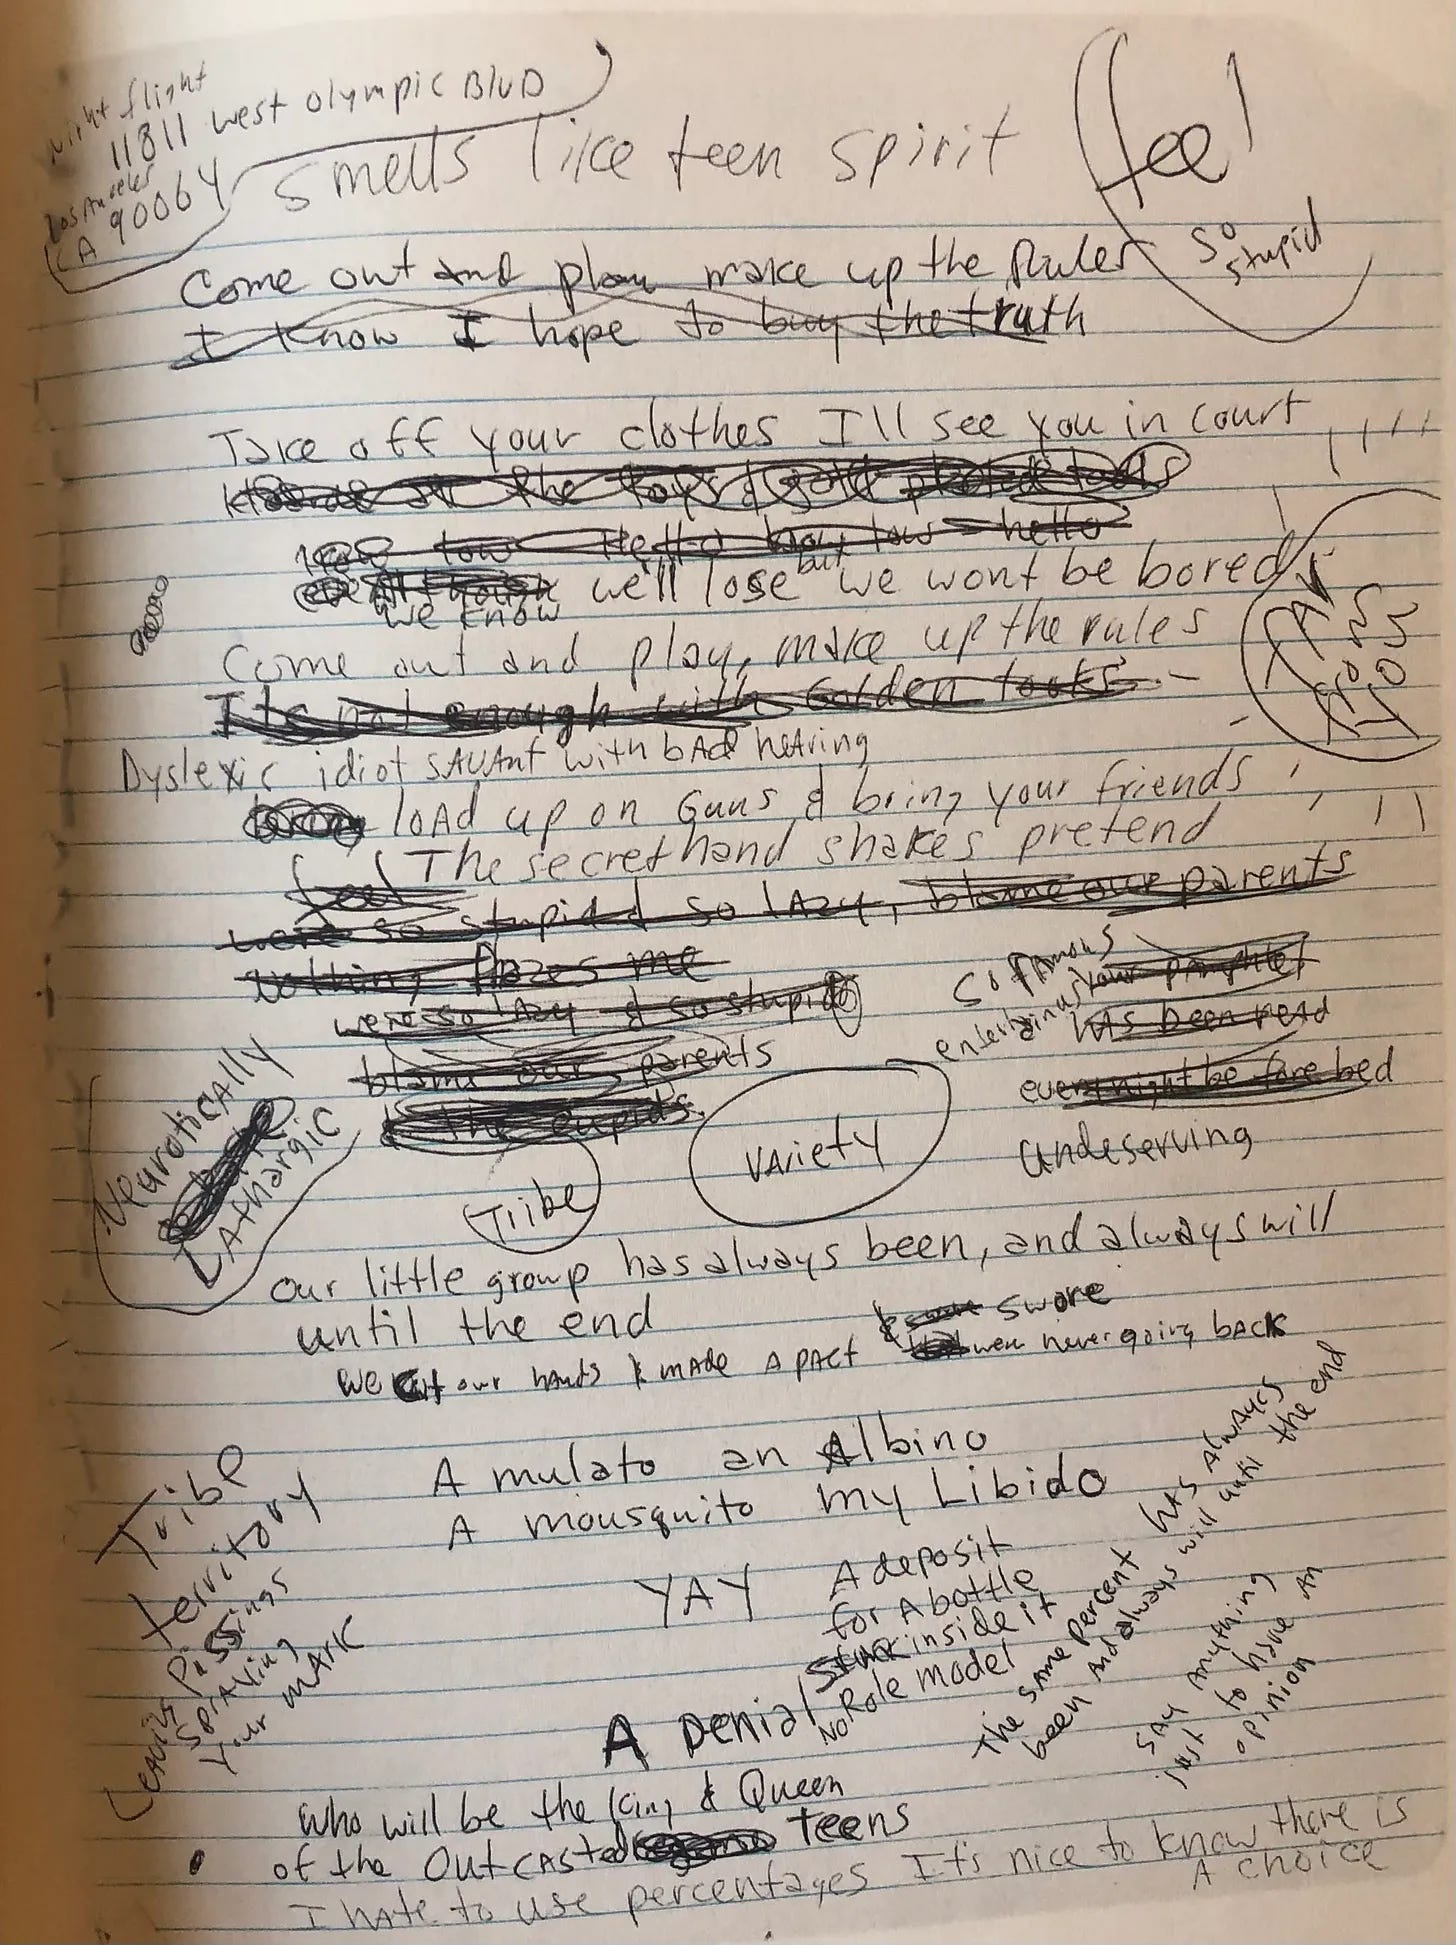 Night flight
11811 West Olympic BlvD
Los Angeles
CA 90064
smells like teen spirit
feel
so
stupid
Come out and play make up the Rules
I know I hope to buy the truth
Take off your clothes I'll see you in court
the toys & gold plated tools
low Hello how low - hello
we know we'll lose but we wont be bored
Come out and play, make up the rules
Its not enough with Golden tooks
Dyslexic idiot sAvAnt with bAd heAring
loAd up on Guns & bring your friends
The secret hand shakes pretend
feel
were so stupid & so lAzy, blame our parents
nothing fazes me
were so lAzy & so stupid
blame our parents
& the cupids
so fAmous
your pamphlet
has been read
every night before bed
undeserving
NeuroticAlly
LAthArgic
vAriety
Tribe
our little group has always been, and always will
until the end
& swore
We cut our hands & mADe A pAct were never going bAck
A mulato an Albino
A mousquito my Libido
YAY
A deposit
for A bottle
stuck inside it
No Role model
A Denial
The sAme percent hAs AlwAyes
been And always will until the end
sAy Anything
just to hAve An
opinion
Tribe
territory
LeAving Pissings
sprAying
your mArk
who will be the King & Queen
of the OutcAsted teens
I hAte to use percentages It's nice to know there is
A choice